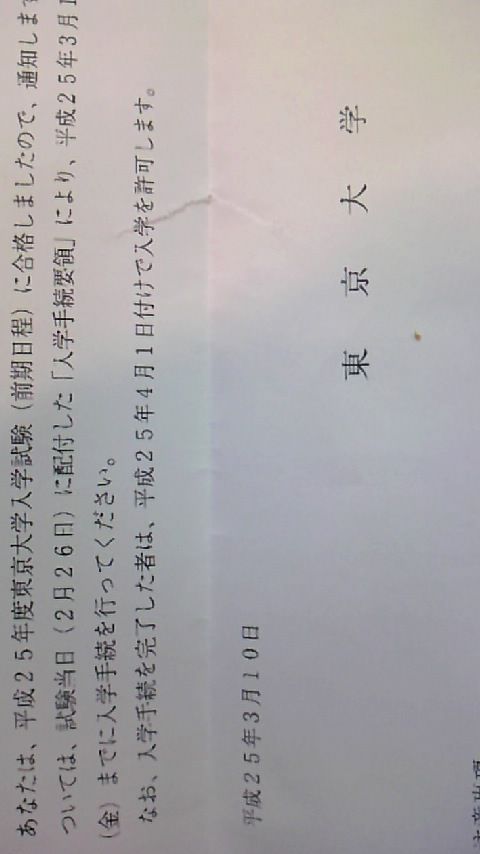 あなたは、平成２５年度東京大学入学試験（前期日程）に合格しましたので、通知します
ついては、試験当日（２月２６日）に配付した「入学手続要領」により、平成２５年３月１
（金）までに入学手続を行ってください。
なお、入学手続を完了した者は、平成２５年４月１日付けで入学を許可します。
平成２５年３月１０日
東京大学